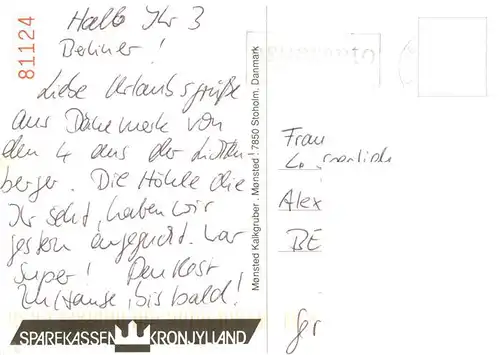 81124
Hallo Ihr 3
Berliner!
Liebe Urlaubsgrüße
aus Dänemark von
den 4 aus der
berger. Die Höhle die
Ihr seht, haben wir
gestern angeguckt. War
super! Den Rest
zu Hause, bis bald!
Mønsted Kalkgruber . Mønsted ! 7850 Stoholm. Danmark
Frau
Alex
BE
Ger
SPAREKASSEN KRONJYLLAND